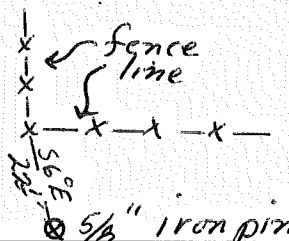 fence
line
S6°E
5/8" iron pin